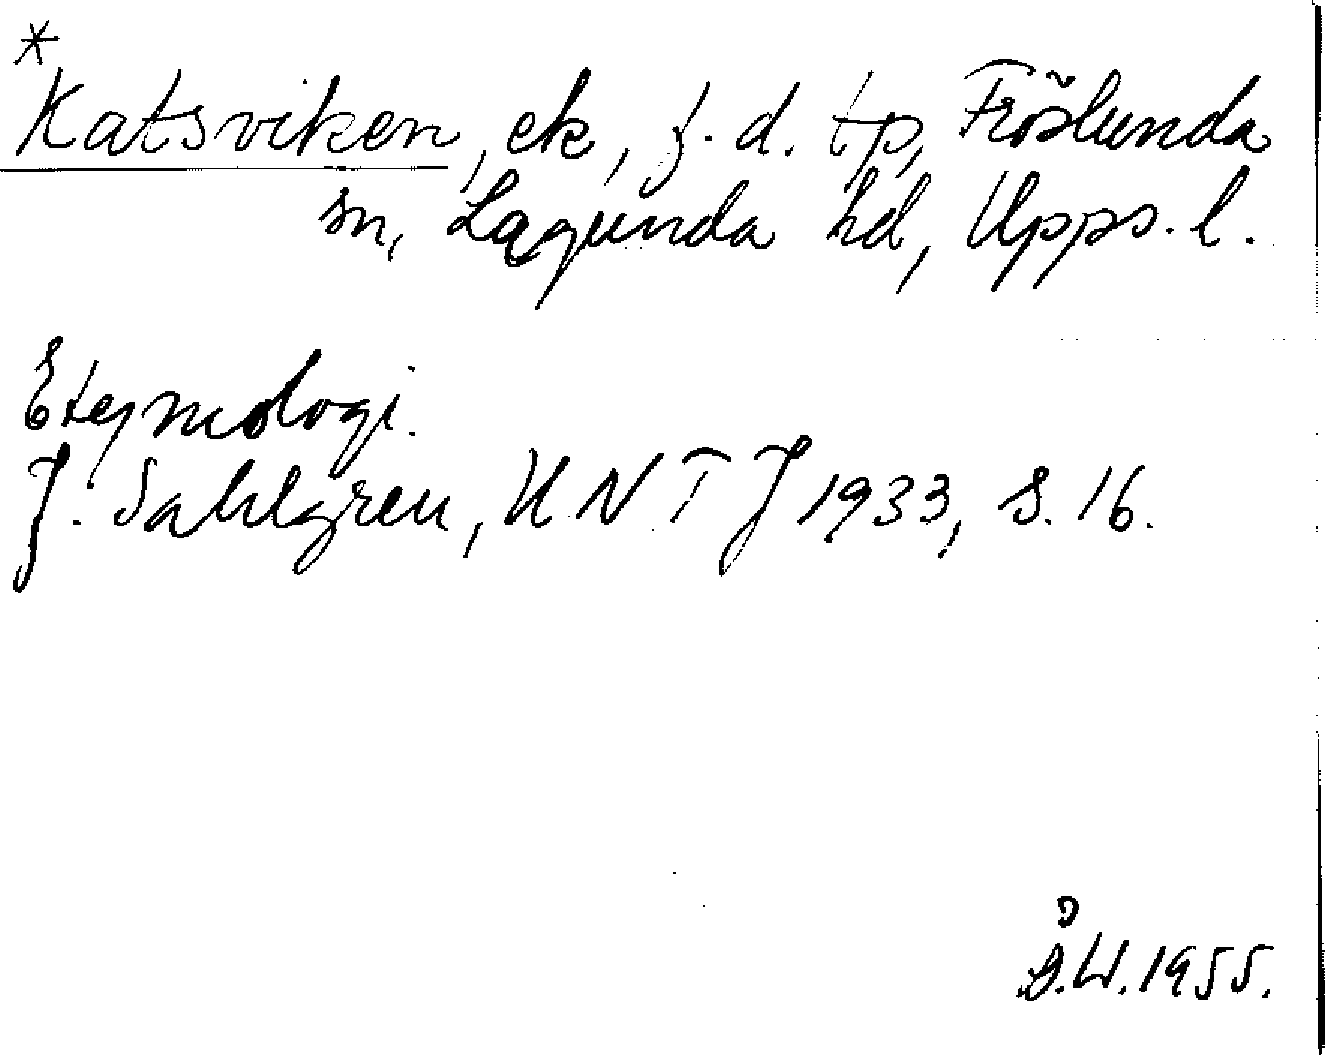 *
Katsviken, ek, f. d. tp, Fröslunda
sn, Lagunda hd, Upps. l.
Etymologi.
J. Sahlgren, UNTJ 1933, s. 16.
Å.W. 1955.